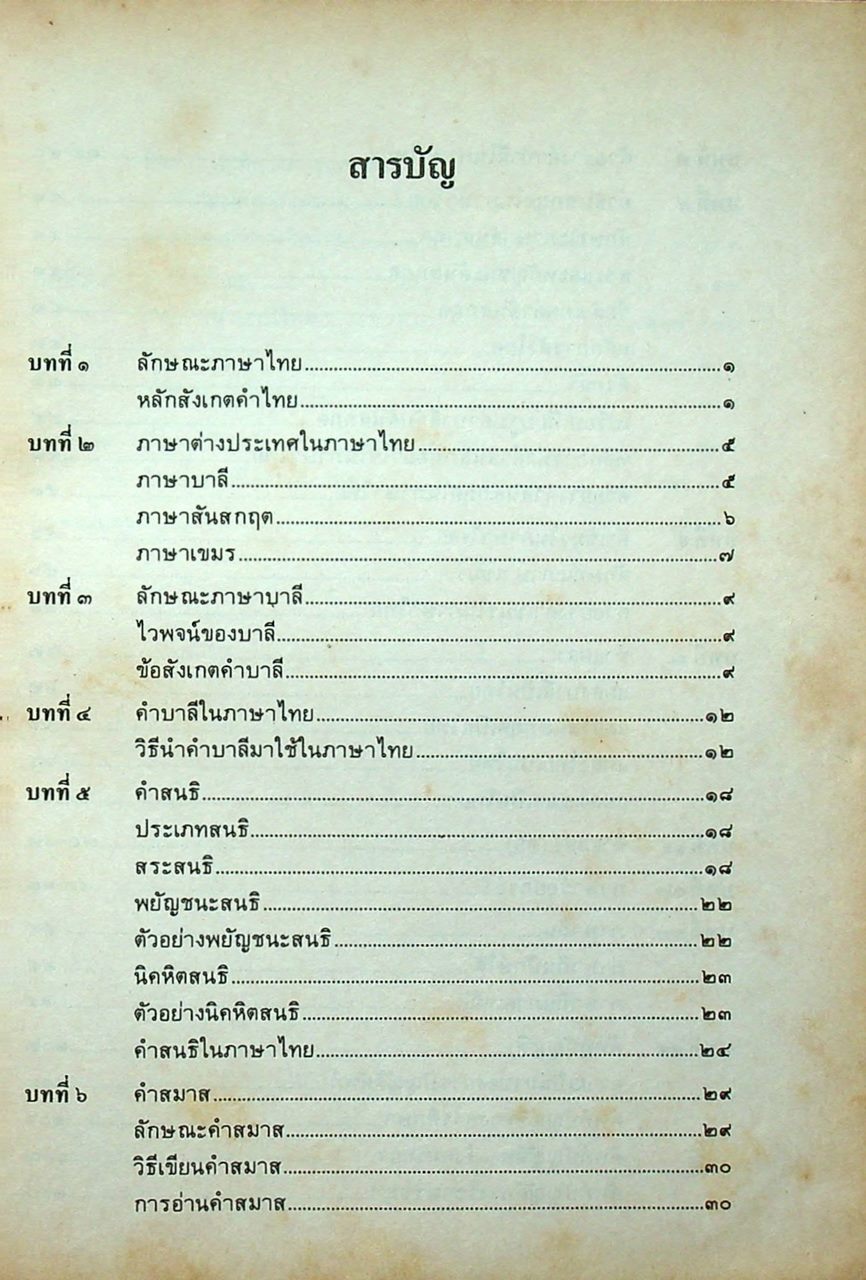 สารบัญ
บทที่ ๑ ลักษณะภาษาไทย................................๑
หลักสังเกตคำไทย................................๑
บทที่ ๒ ภาษาต่างประเทศในภาษาไทย................................๕
ภาษาบาลี................................๕
ภาษาสันสกฤต................................๖
ภาษาเขมร................................๗
บทที่ ๓ ลักษณะภาษาบาลี................................๙
ไวพจน์ของบาลี................................๙
ข้อสังเกตคำบาลี................................๙
บทที่ ๔ คำบาลีในภาษาไทย................................๑๒
วิธีนำคำบาลีมาใช้ในภาษาไทย................................๑๒
บทที่ ๕ คำสนธิ................................๑๘
ประเภทสนธิ................................๑๘
สระสนธิ................................๑๘
พยัญชนะสนธิ................................๒๒
ตัวอย่างพยัญชนะสนธิ................................๒๒
นิคหิตสนธิ................................๒๓
ตัวอย่างนิคหิตสนธิ................................๒๓
คำสนธิในภาษาไทย................................๒๔
บทที่ ๖ คำสมาส................................๒๙
ลักษณะคำสมาส................................๒๙
วิธีเขียนคำสมาส................................๓๐
การอ่านคำสมาส................................๓๐